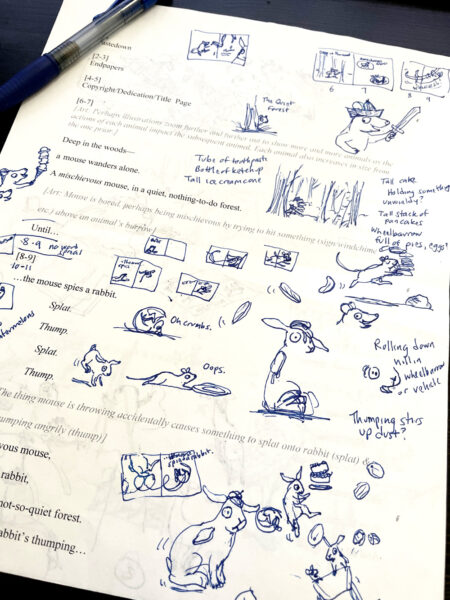 Pastedown
[2-3]
Endpapers
[4-5]
Copyright/Dedication/Title Page
[6-7]
[Art: Perhaps illustrations zoom further and further out to show more and more animals as the
actions of each animal impact the subsequent animal. Each animal also increases in size from
the one prior.]
6 7
8 9
The Quiet
Forest
Deep in the woods—
a mouse wanders alone.
A mischievous mouse, in a quiet, nothing-to-do forest.
Tube of toothpaste
Bottle of ketchup
Tall ice cream cone
Tall cake
Holding something
unwieldy?
Tall stack of
pancakes
Wheelbarrow
full of pies, eggs?
[Art: Mouse is bored, perhaps being mischievous by trying to hit something (sign, windchime,
etc.) above an animal's burrow]
Until...
8-9 no word
[8-9]
10-11
...the mouse spies a rabbit.
Splat.
Thump.
Splat.
Thump.
Oh crumbs.
Oops.
Rolling down
hill in
wheelbarrow
or vehicle
Thumping stirs
up dust?
The thing mouse is throwing accidentally causes something to splat onto rabbit (splat) &
thumping angrily (thump)]
mouse,
rabbit.
not-so-quiet forest.
rabbit's thumping...